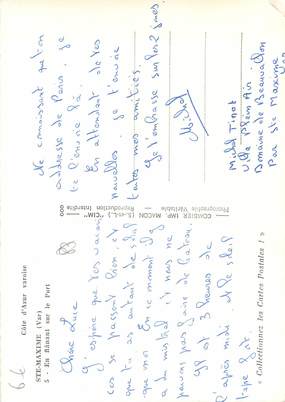 Côte d'Azur varoise
STE-MAXIME (Var)
5 - En flânant sur le Port
66
Chère Luce
J'espère que tes vacan
ces se passent bien et
que tu as autant de soleil
que moi. En ce moment il y
a du mistral et nous ne
pouvons pas faire de bateau.
Il est 3 heures de
l'après midi et le soleil
tape fort.
« Collectionnez les Cartes Postales ! »
COMBIER IMP. MACON (S.-et-L.) "CIM"
Photographie Véritable - Reproduction Interdite
Ne connaissant pas ton
addresse de Paris, je
te l'envoie là.
En attendant de tes
nouvelles je t'envoie
toutes mes amitiés.
Je t'embrasse sur les 2 joues
Michel
Michel Tinot
Ville Plein Air
Domaine de Beauvallon
Par Ste Maxime